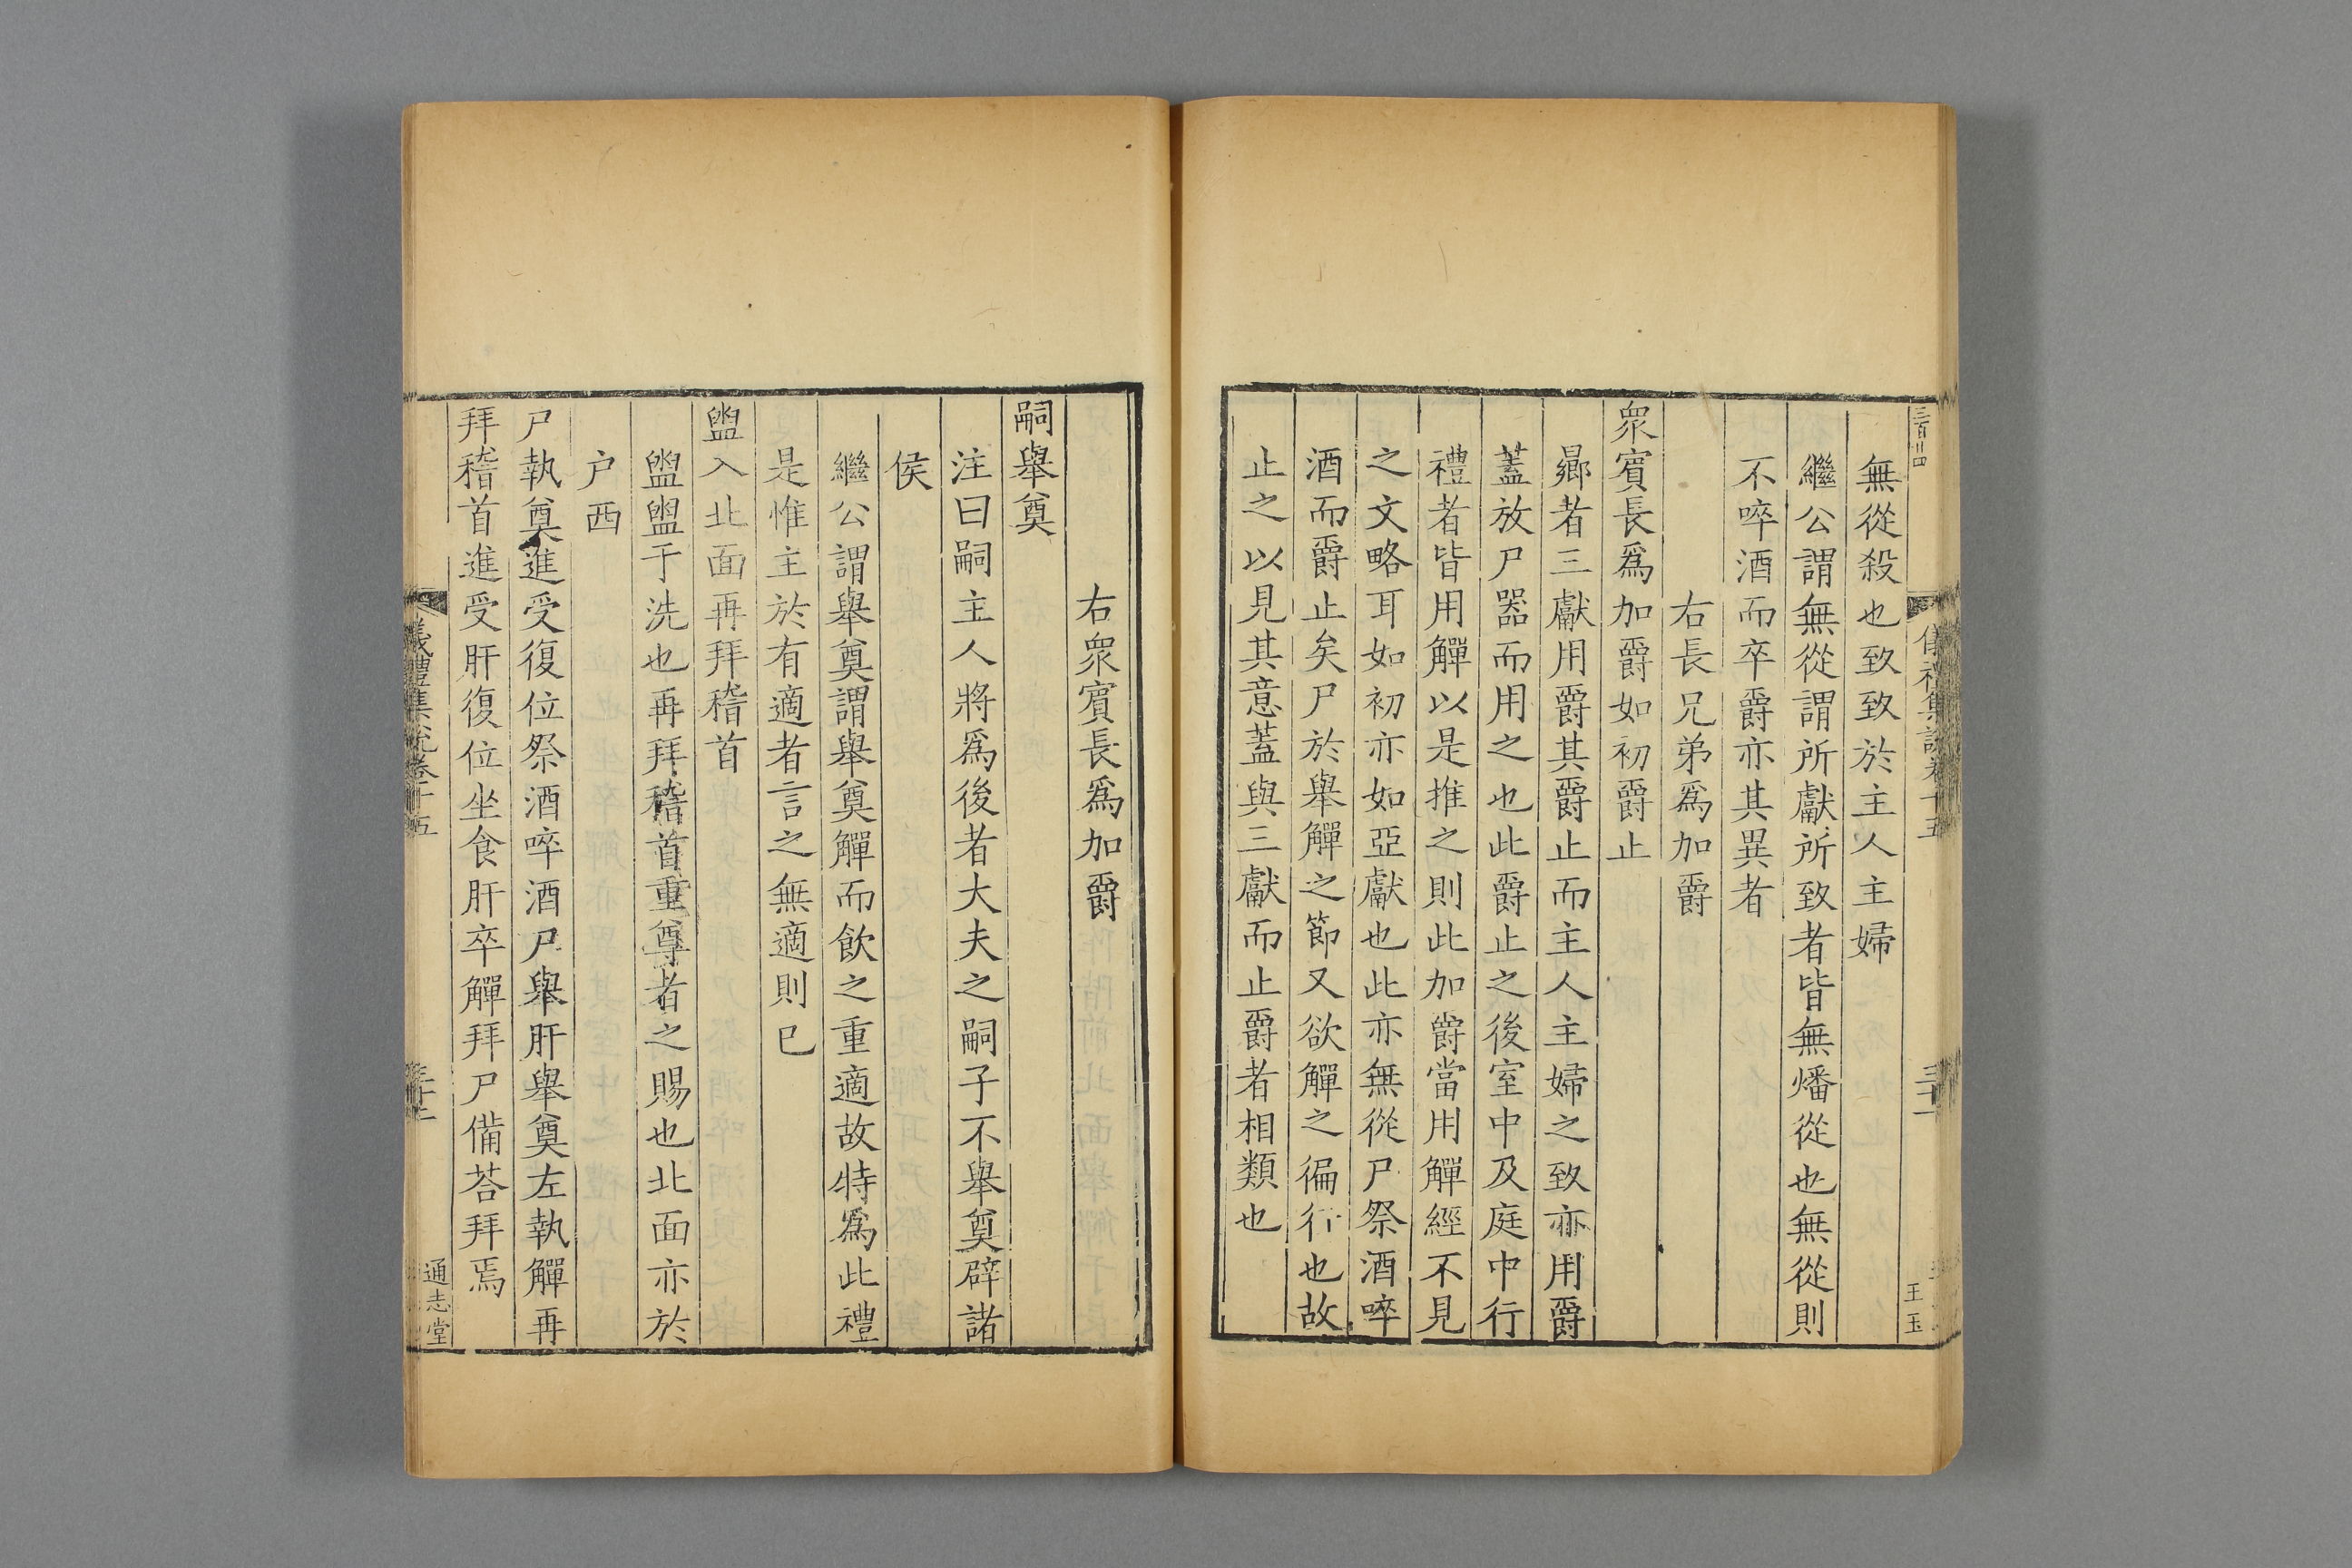 無從殺也致致於主人主婦
繼公謂無從謂所獻所致者皆無燔從也無從則
不啐酒而卒爵亦其異者
右長兄弟爲加爵
衆賓長爲加爵如初爵止
曏者三獻用爵其爵止而主人主婦之致亦用爵
蓋放尸器而用之也此爵止之後室中及庭中行
禮者皆用觶以是推之則此加爵當用觶經不見
之文略耳如初亦如亞獻也此亦無從尸祭酒啐
酒而爵止矣尸於舉觶之節又欲觶之徧行也故
止之以見其意蓋與三獻而止爵者相類也
王玉
右衆賓長爲加爵
嗣舉奠
注曰嗣主人將爲後者大夫之嗣子不舉奠辟諸
侯
繼公謂舉奠謂舉奠觶而飲之重適故特爲此禮
是惟主於有適者言之無適則已
盥入北面再拜稽首
盥盥于洗也再拜稽首重尊者之賜也北面亦於
户西
尸執奠進受復位祭酒啐酒尸舉肝舉奠左執觶再
拜稽首進受肝復位坐食肝卒觶拜尸備荅拜焉
儀禮集說卷十五
通志堂